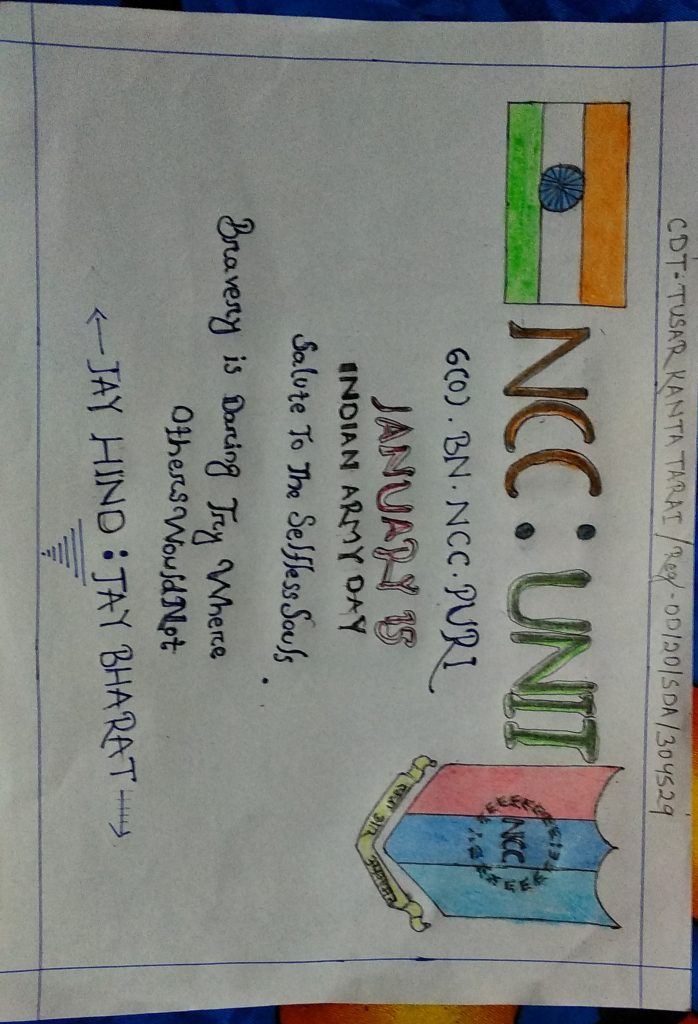 CDT:-TUSAR KANTA TARAI / Reg-OD/20/SDA/304529
NCC : UNIT
NCC
एकता और अनुशासन
6(O). BN. NCC. PURI
JANUARY 15
INDIAN ARMY DAY
Salute To The Selfless Souls.
Bravery is Daring Try Where
Others Would Not
←JAY HIND : JAY BHARAT→